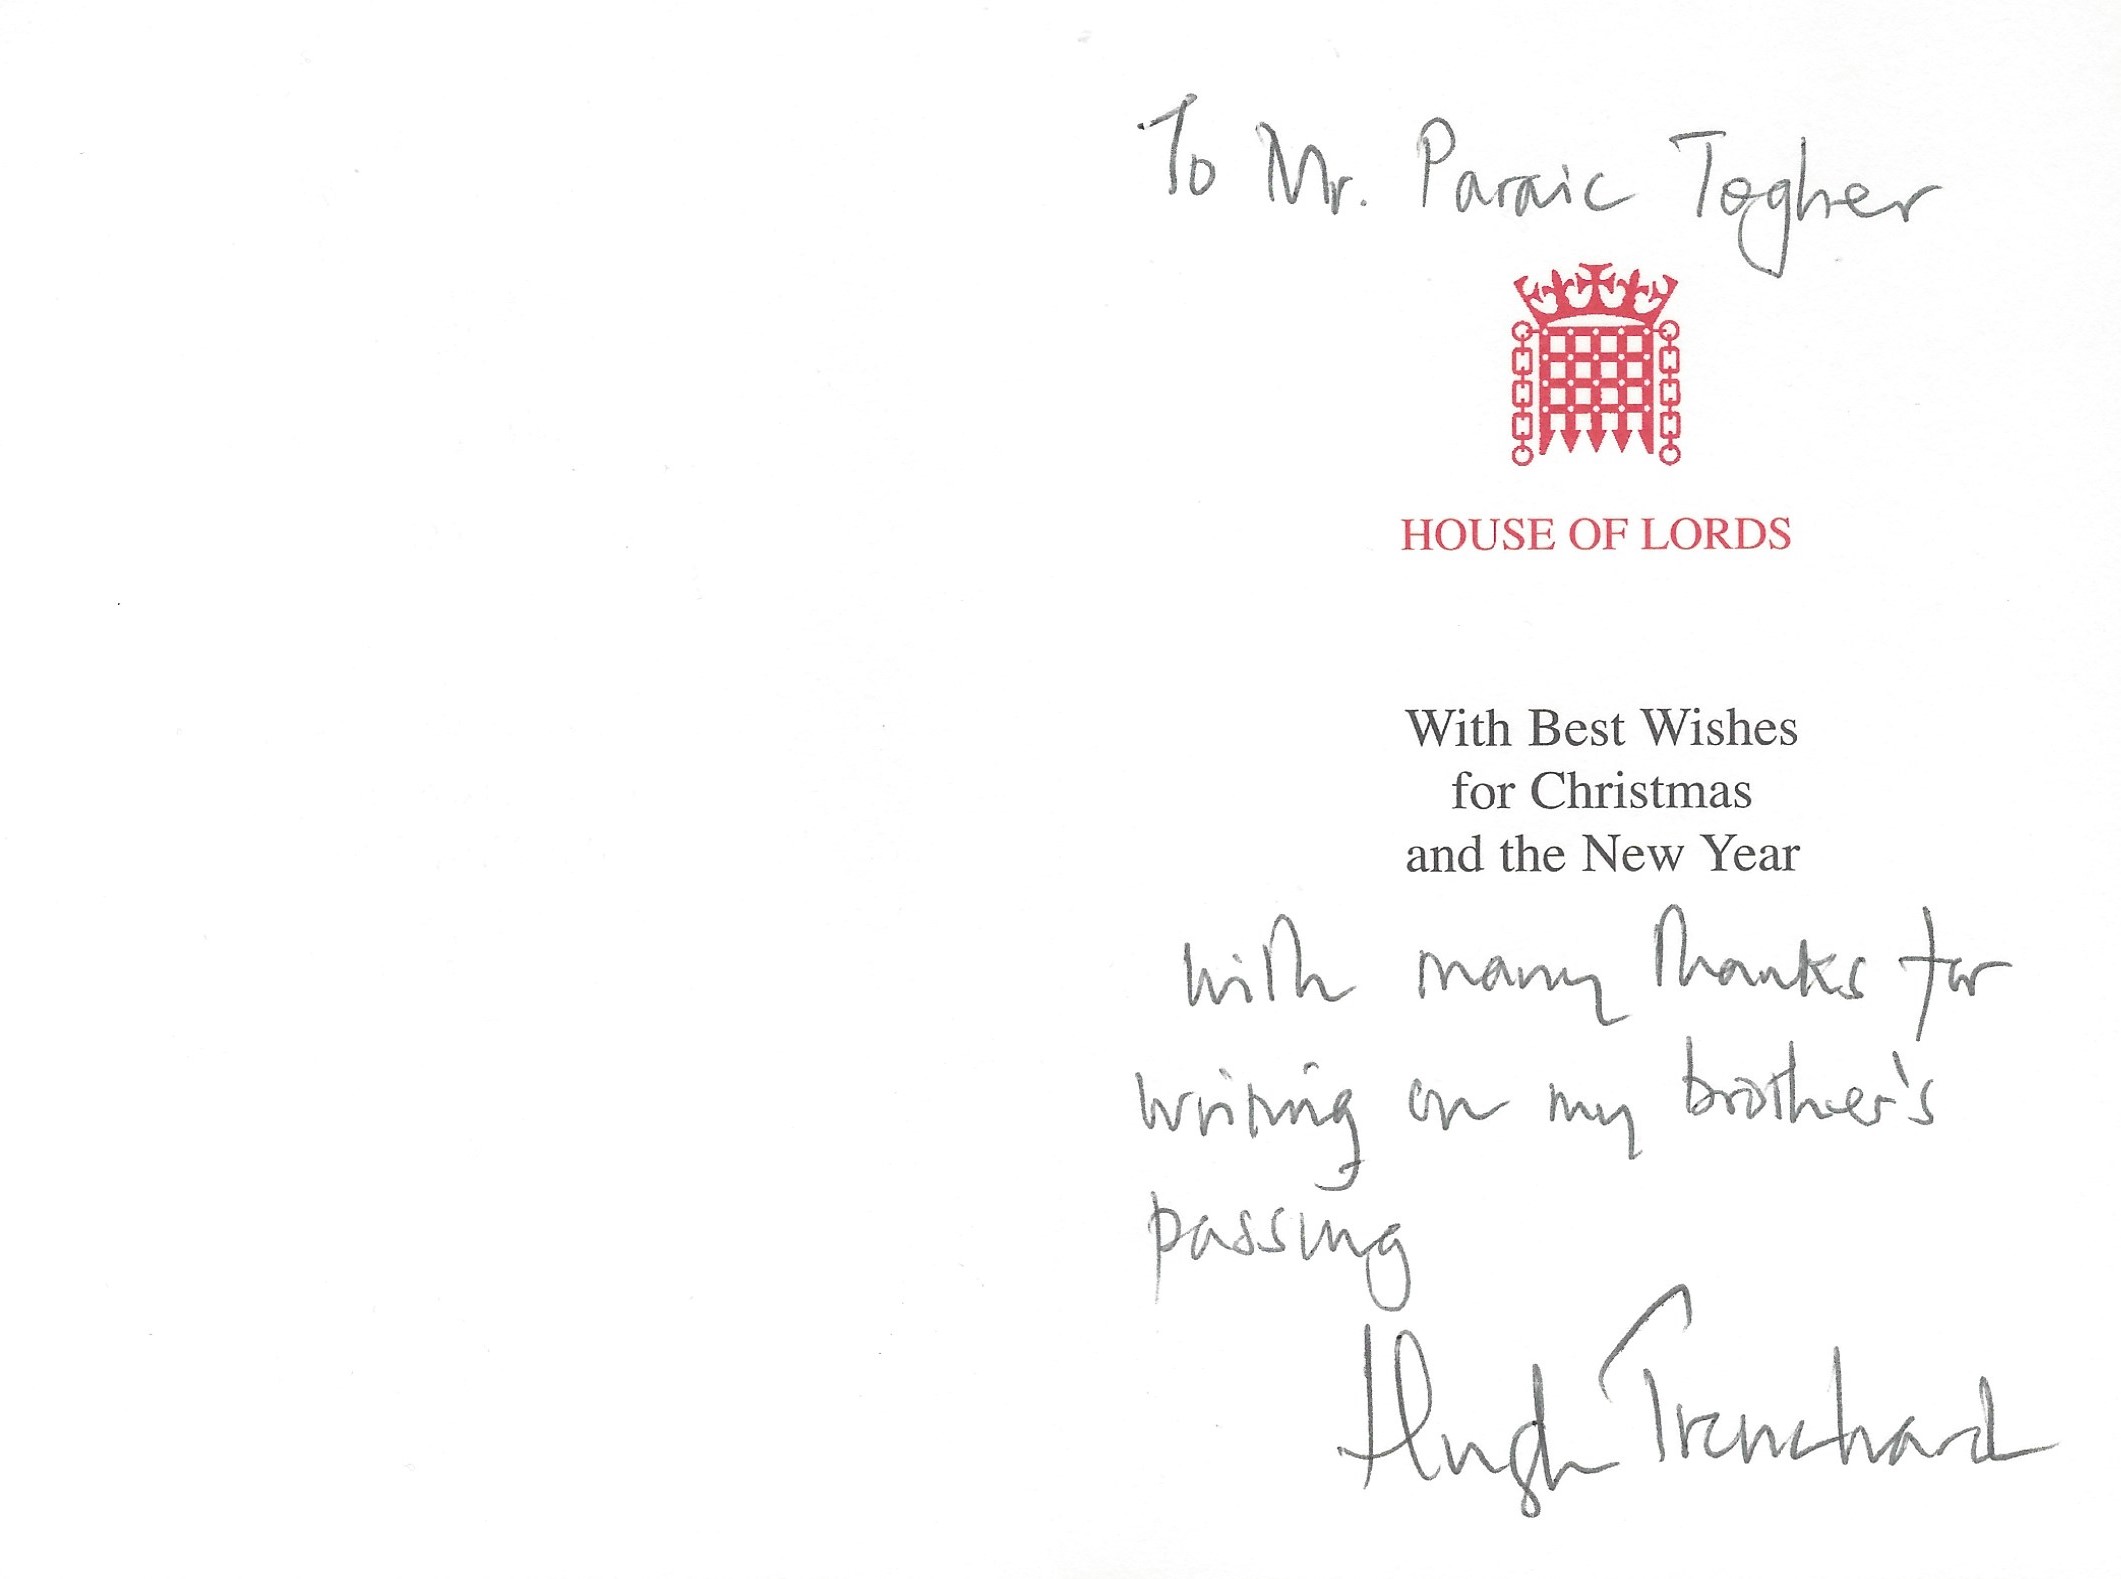 To Mr. Paraic Togher
HOUSE OF LORDS
With Best Wishes
for Christmas
and the New Year
with many thanks for
writing on my brother's
passing
Hugh Trenchard